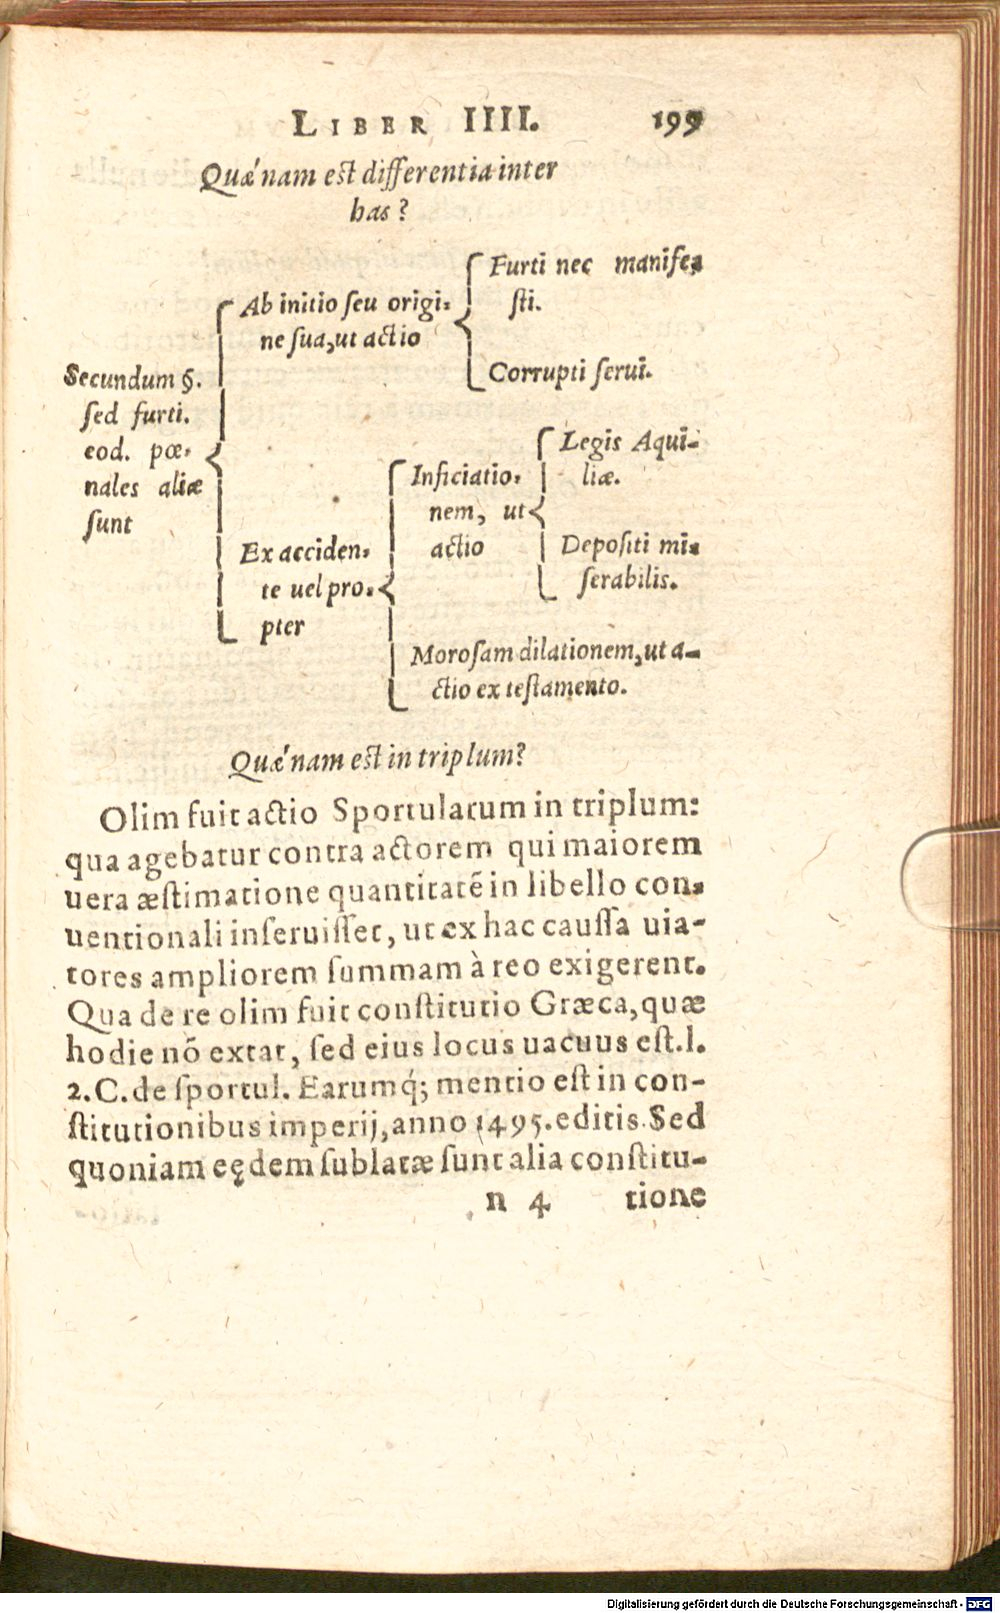 LIBER IIII. 199
Quæ'nam est differentia inter
has?
Secundum §.
sed furti.
eod. pœ-
nales aliæ
sunt
Ab initio seu origi-
ne sua, ut actio
Furti nec manife-
sti.
Corrupti serui.
Ex acciden-
te uel pro-
pter
Inficiatio-
nem, ut
actio
Legis Aqui-
liæ.
Depositi mi-
serabilis.
Morosam dilationem, ut a-
ctio ex testamento.
Quæ'nam est in triplum?
Olim fuit actio Sportularum in triplum:
qua agebatur contra actorem qui maiorem
uera æstimatione quantitatẽ in libello con-
uentionali inseruisset, ut ex hac caussa uia-
tores ampliorem summam à reo exigerent.
Qua de re olim fuit constitutio Græca, quæ
hodie nõ extat, sed eius locus uacuus est. l.
2. C. de sportul. Earumq́; mentio est in con-
stitutionibus imperij, anno 1495. editis. Sed
quoniam eędem sublatæ sunt alia constitu-
n 4 tione
Digitalisierung gefördert durch die Deutsche Forschungsgemeinschaft - DFG